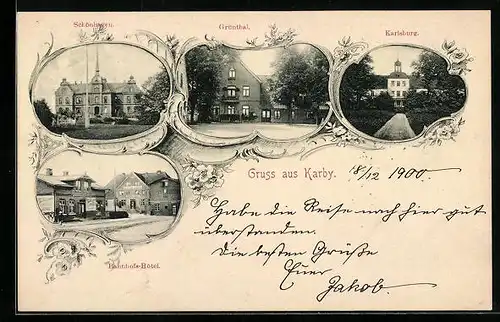 Schönhagen.
Grünthal.
Karlsburg.
Gruss aus Karby. 18/12 1900.
Habe die Reise nach hier gut
überstanden.
Die besten Grüße
Euer
Jakob.
Bahnhofs-Hôtel.